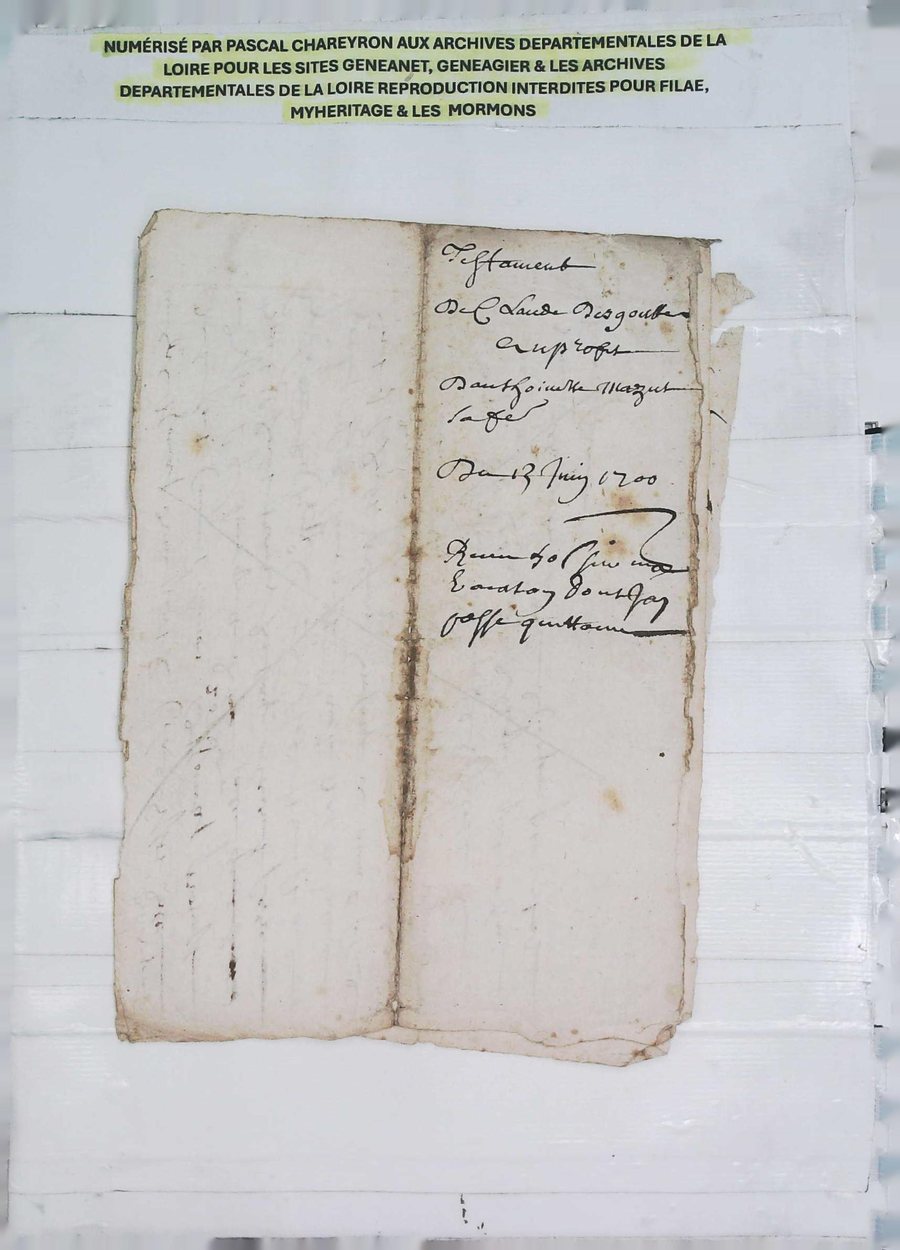 NUMÉRISÉ PAR PASCAL CHAREYRON AUX ARCHIVES DEPARTEMENTALES DE LA
LOIRE POUR LES SITES GENEANET, GENEAGIER & LES ARCHIVES
DEPARTEMENTALES DE LA LOIRE REPRODUCTION INTERDITES POUR FILAE,
MYHERITAGE & LES MORMONS
Testament
De Claude Desgoutte
au profit
Danthoinette Mazet
sa fe
Du 13 Juin 1700
vacaton dont Jay
passé quittance